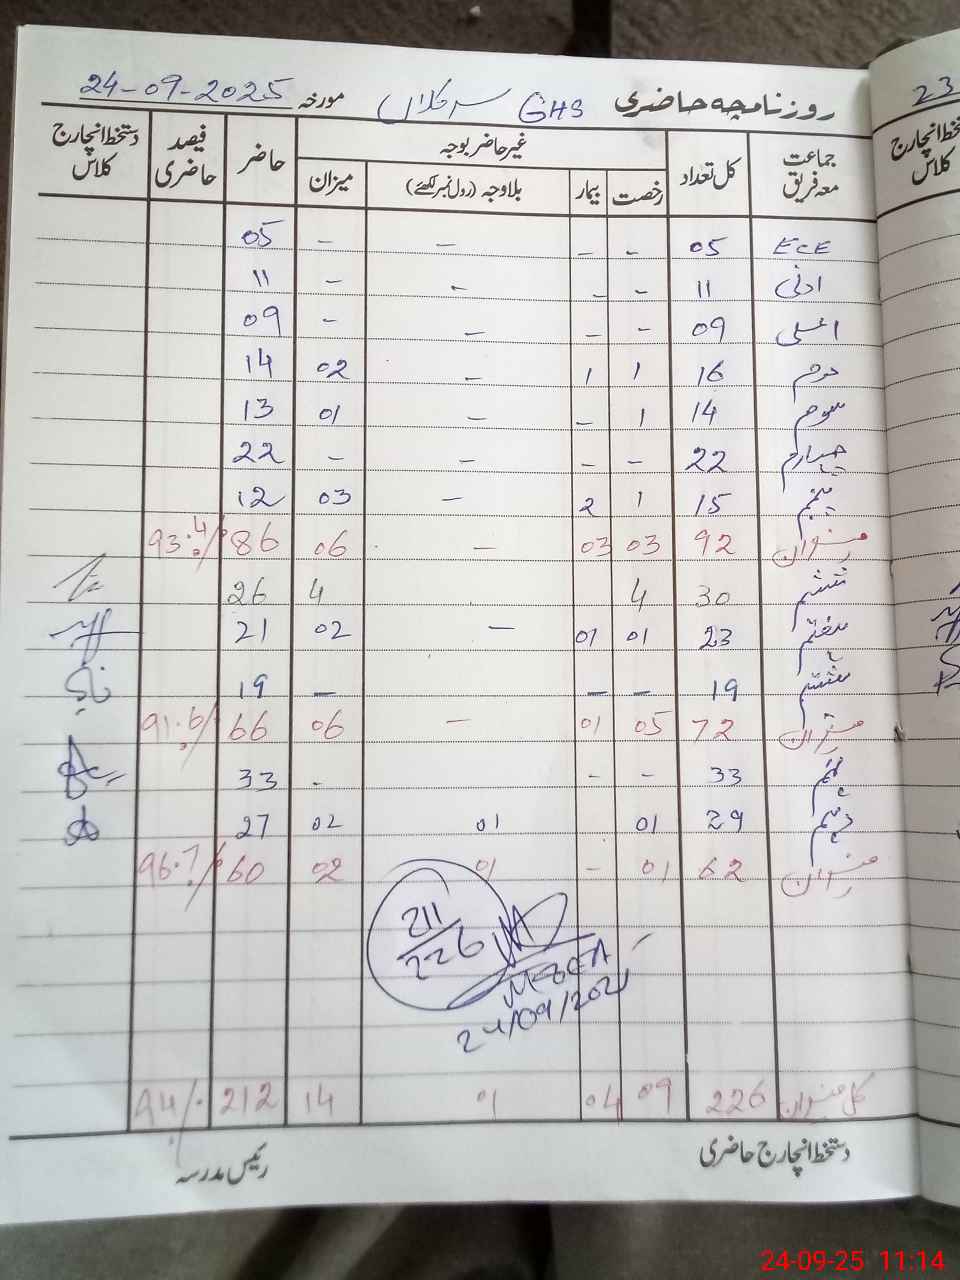 روزنامچہ حاضری GHS سرکلاں مورخہ 24-09-2025
جماعت معہ فریق کل تعداد غیر حاضر بوجہ حاضر فیصد حاضری دستخط انچارج کلاس
رخصت بیمار بلاوجہ (رول نمبر لکھئے) میزان
ECE 05 - - - - 05
ادنیٰ 11 - - - - 11
اعلیٰ 09 - - - - 09
دوم 16 1 1 - 02 14
سوم 14 1 - - 01 13
چہارم 22 - - - - 22
پنجم 15 1 2 - 03 12
میزان 92 03 03 - 06 86 93.4%
ششم 30 4 4 26
ہفتم 23 01 01 - 02 21
ہشتم 19 - - - 19
میزان 72 05 01 - 06 66 91.6%
نہم 33 - - - 33
دہم 29 01 01 02 27
میزان 62 01 - 01 02 60 96.7%
211/226
24/09/202
کل میزان 226 09 04 01 14 212 94%
دستخط انچارج حاضری رئیس مدرسہ
23
دستخط انچارج کلاس
24-09-25 11:14